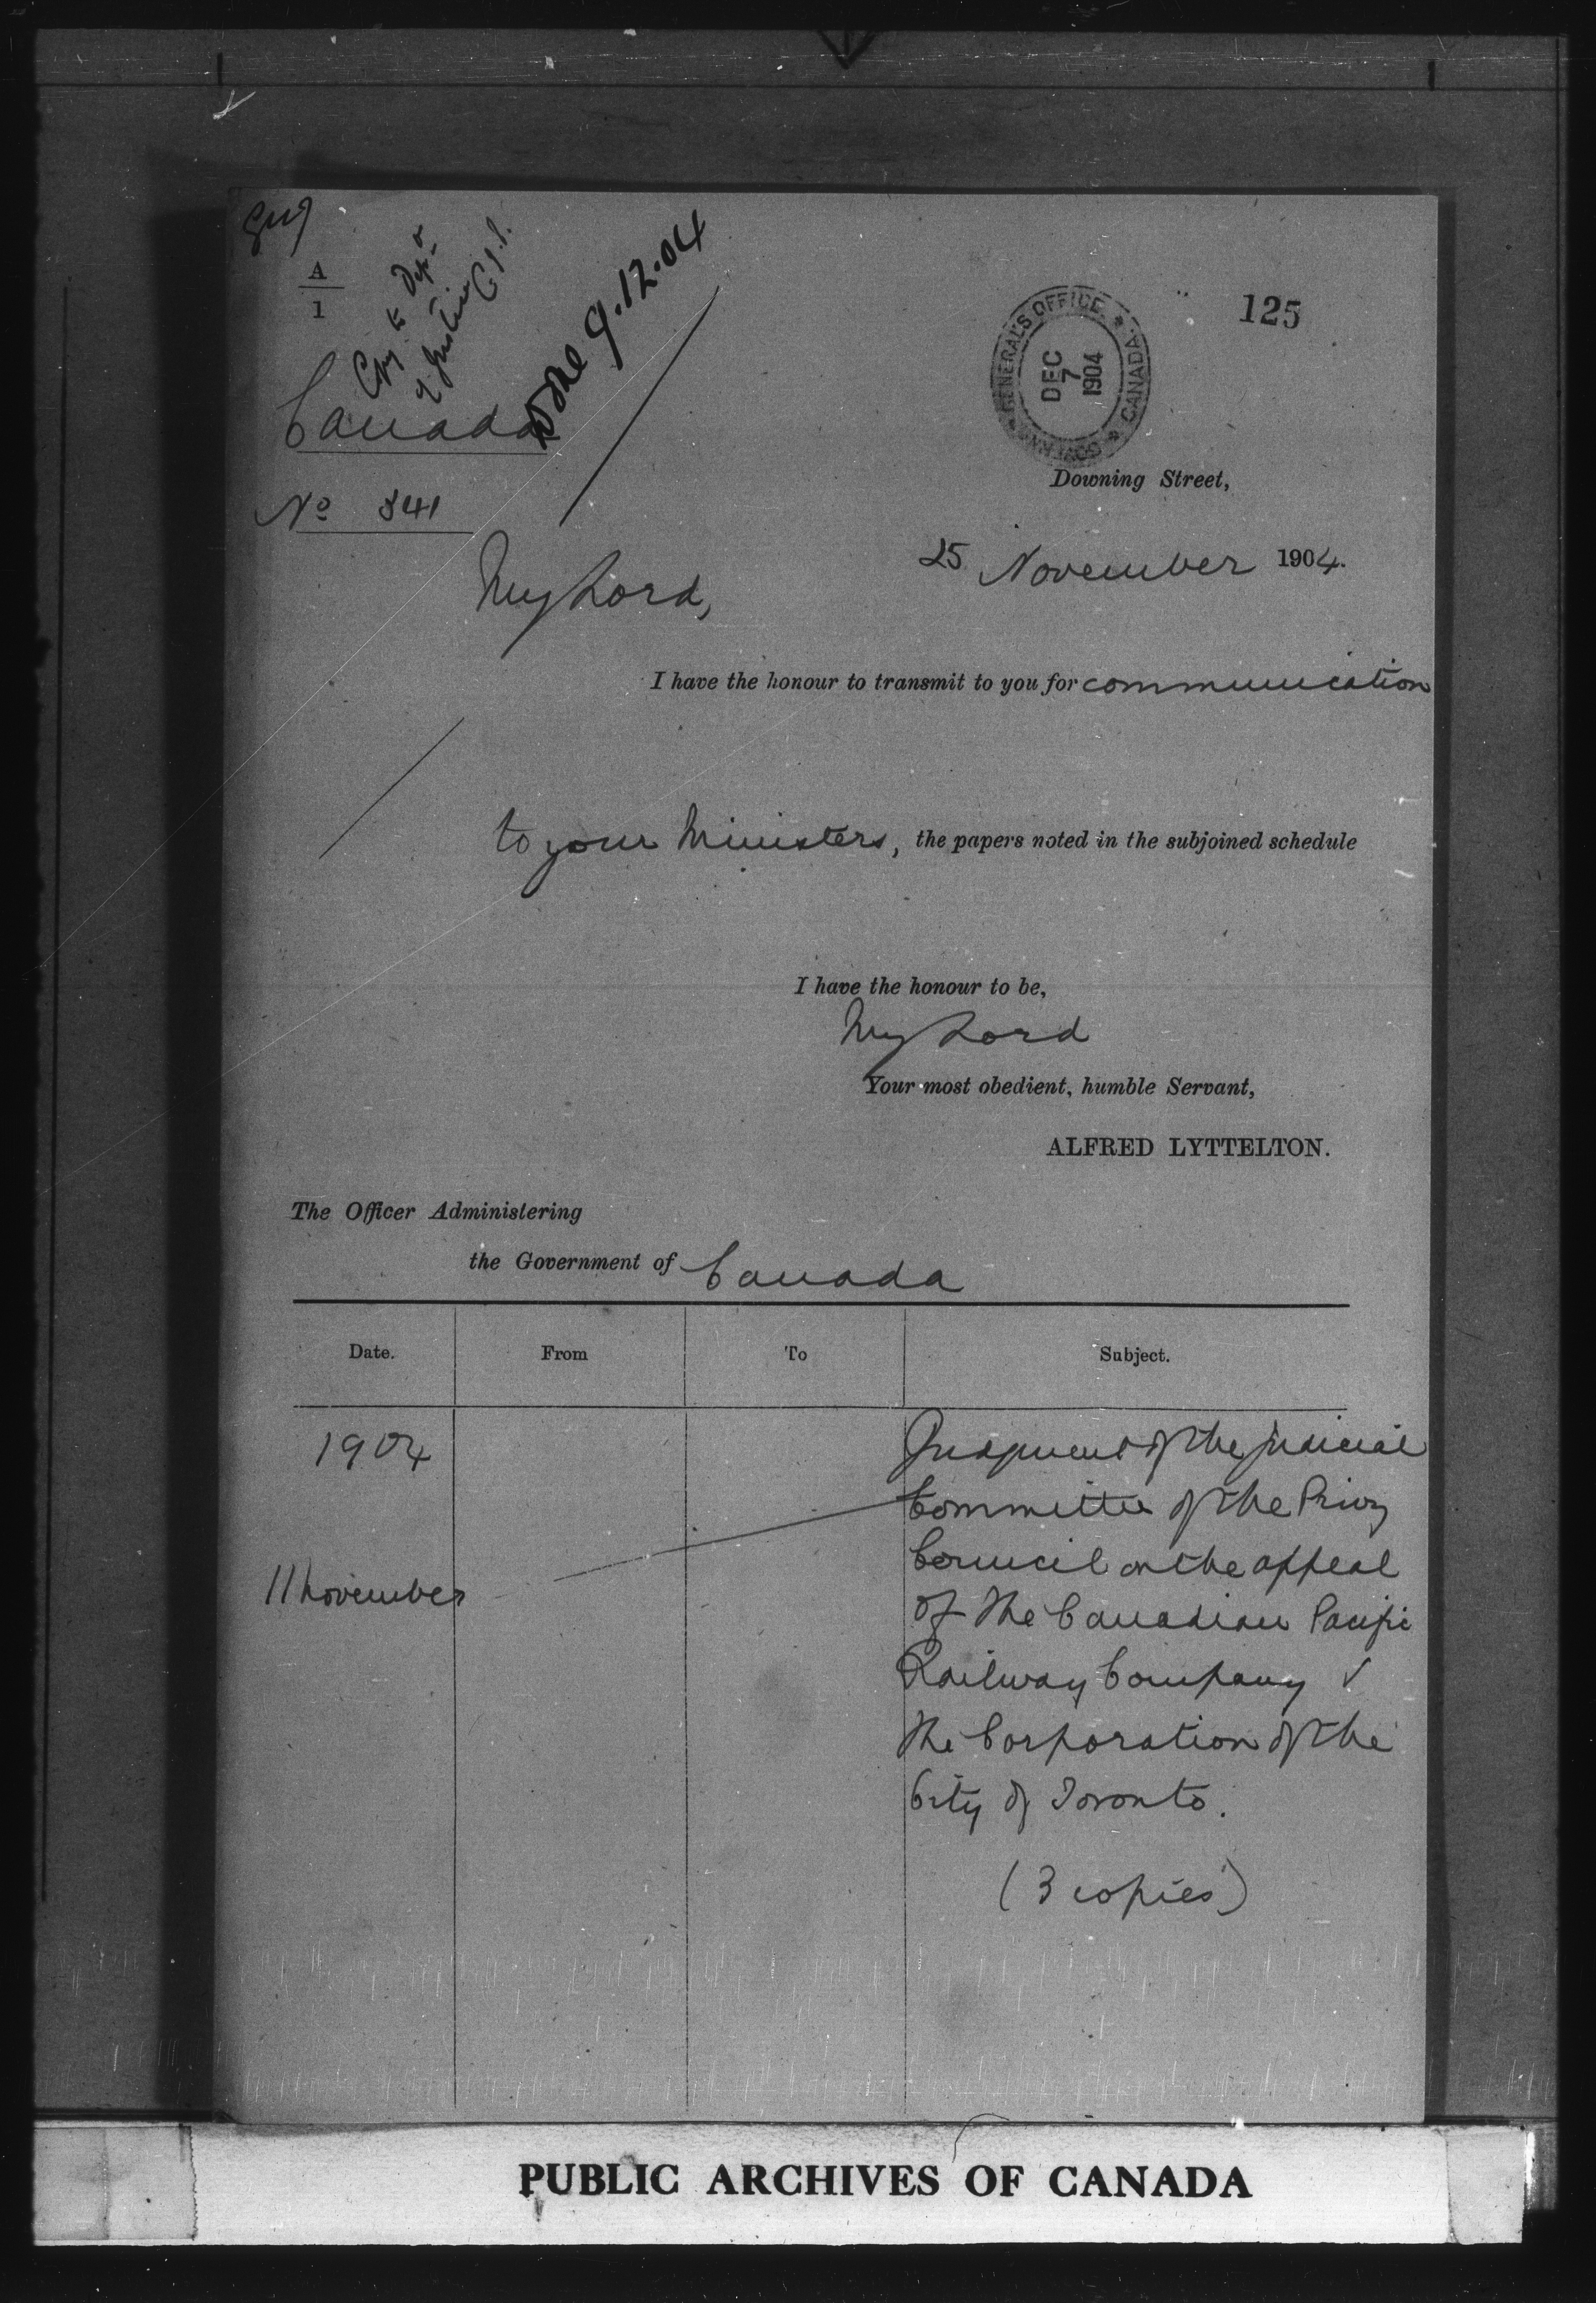 A
1
Copy to Dept
of Justice
9.12.04
125
GOVERNOR GENERAL'S OFFICE * CANADA *
DEC
7
1904
Canada
No 341
Downing Street,
25 November 1904.
My Lord,
I have the honour to transmit to you for communication
to your Ministers, the papers noted in the subjoined schedule
I have the honour to be,
My Lord
Your most obedient, humble Servant,
ALFRED LYTTELTON.
The Officer Administering
the Government of Canada
Date. From To Subject.
1904
11 November
Judgment of the Judicial
Committee of the Privy
Council on the appeal
of The Canadian Pacific
Railway Company v
The Corporation of the
City of Toronto.
(3 copies)
PUBLIC ARCHIVES OF CANADA